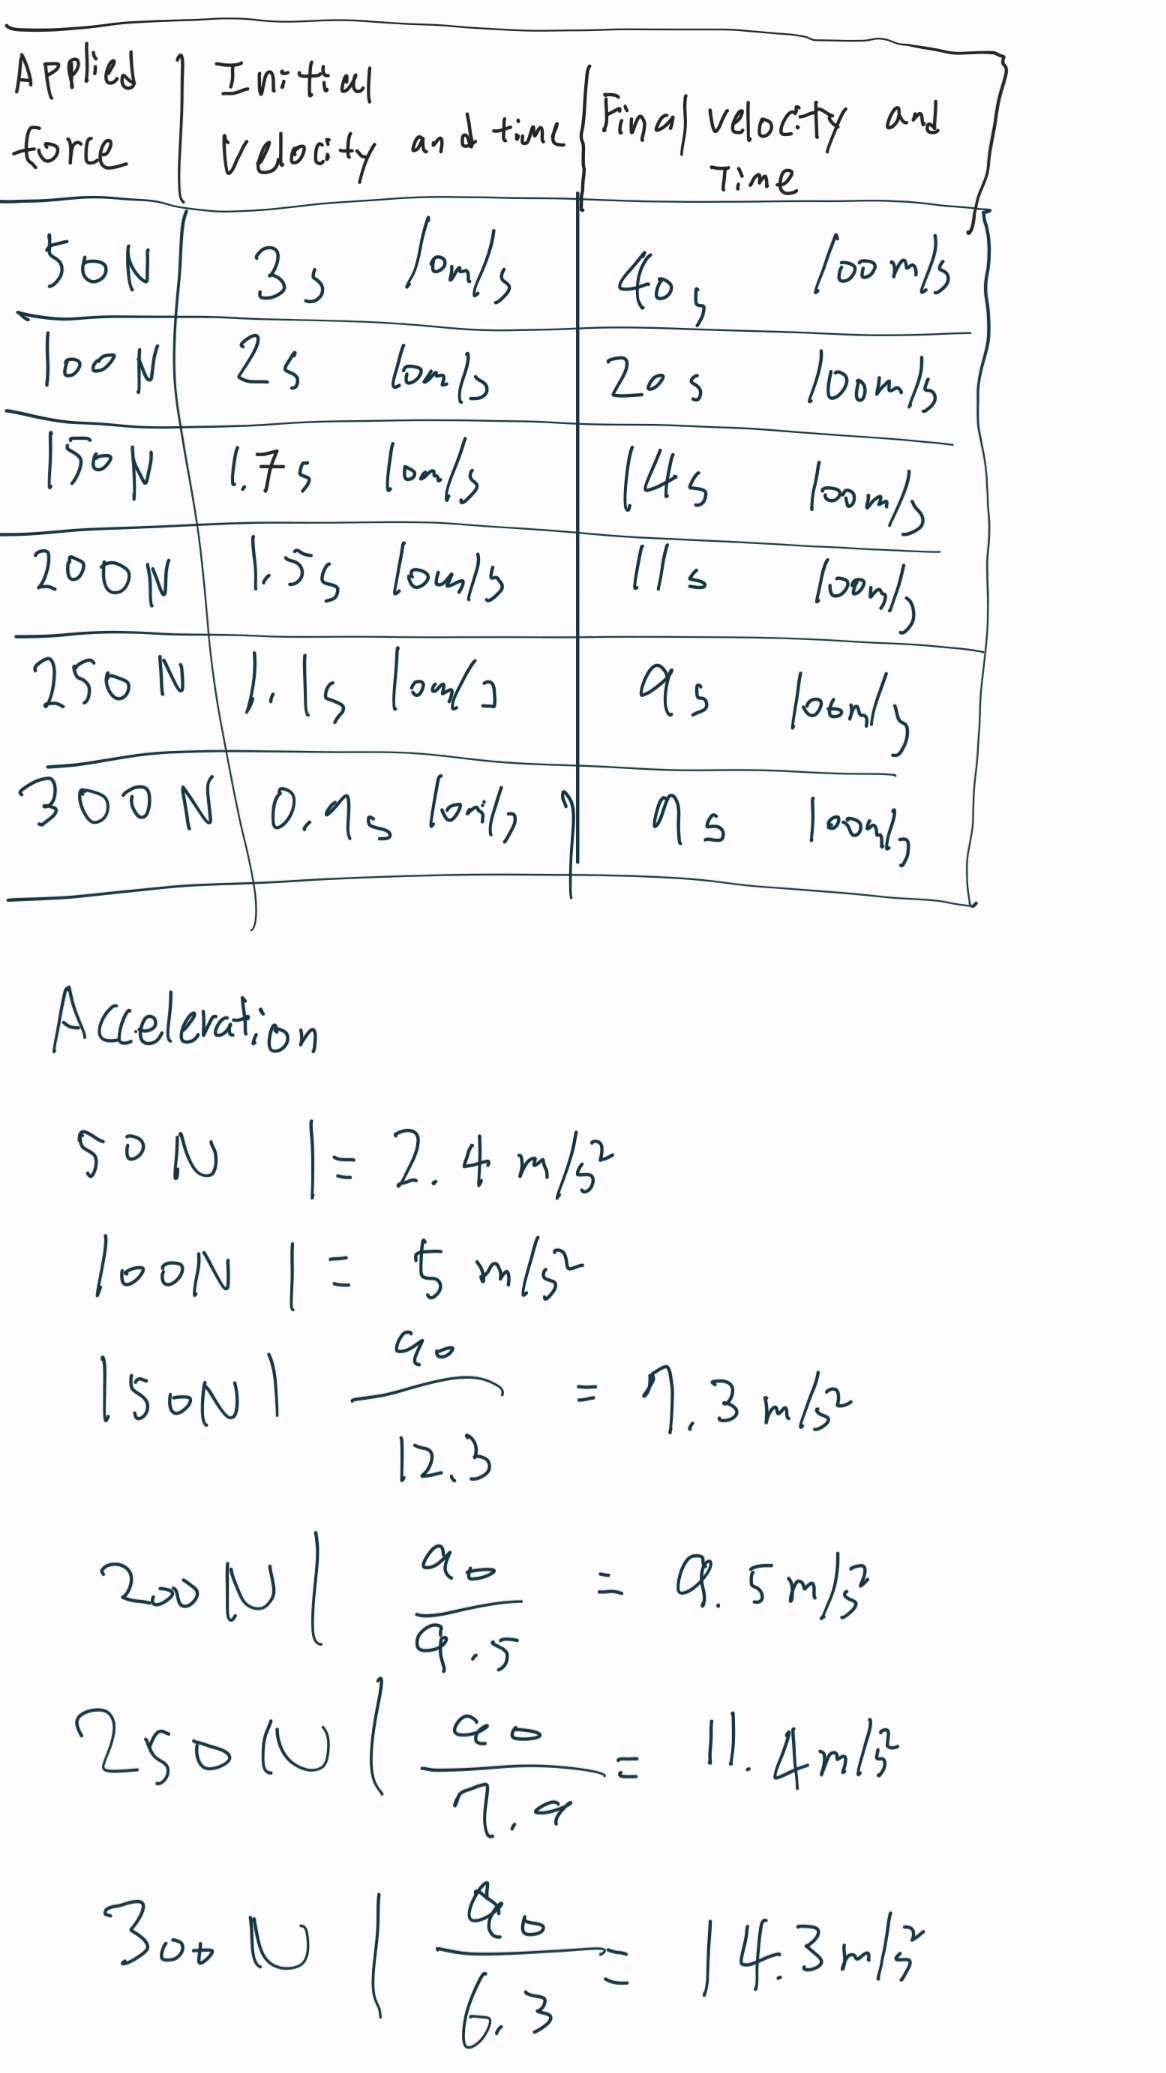 Applied force
Initial velocity and time
Final velocity and Time
50N 3s 10m/s 40s 100m/s
100N 2s 10m/s 20s 100m/s
150N 1.7s 10m/s 14s 100m/s
200N 1.5s 10m/s 11s 100m/s
250N 1.1s 10m/s 9s 100m/s
300N 0.7s 10m/s 7s 100m/s
Acceleration
50N | = 2.4 m/s²
100N | = 5 m/s²
150N | 90/12.3 = 7.3 m/s²
200N | 90/9.5 = 9.5 m/s²
250N | 90/7.9 = 11.4 m/s²
300N | 90/6.3 = 14.3 m/s²